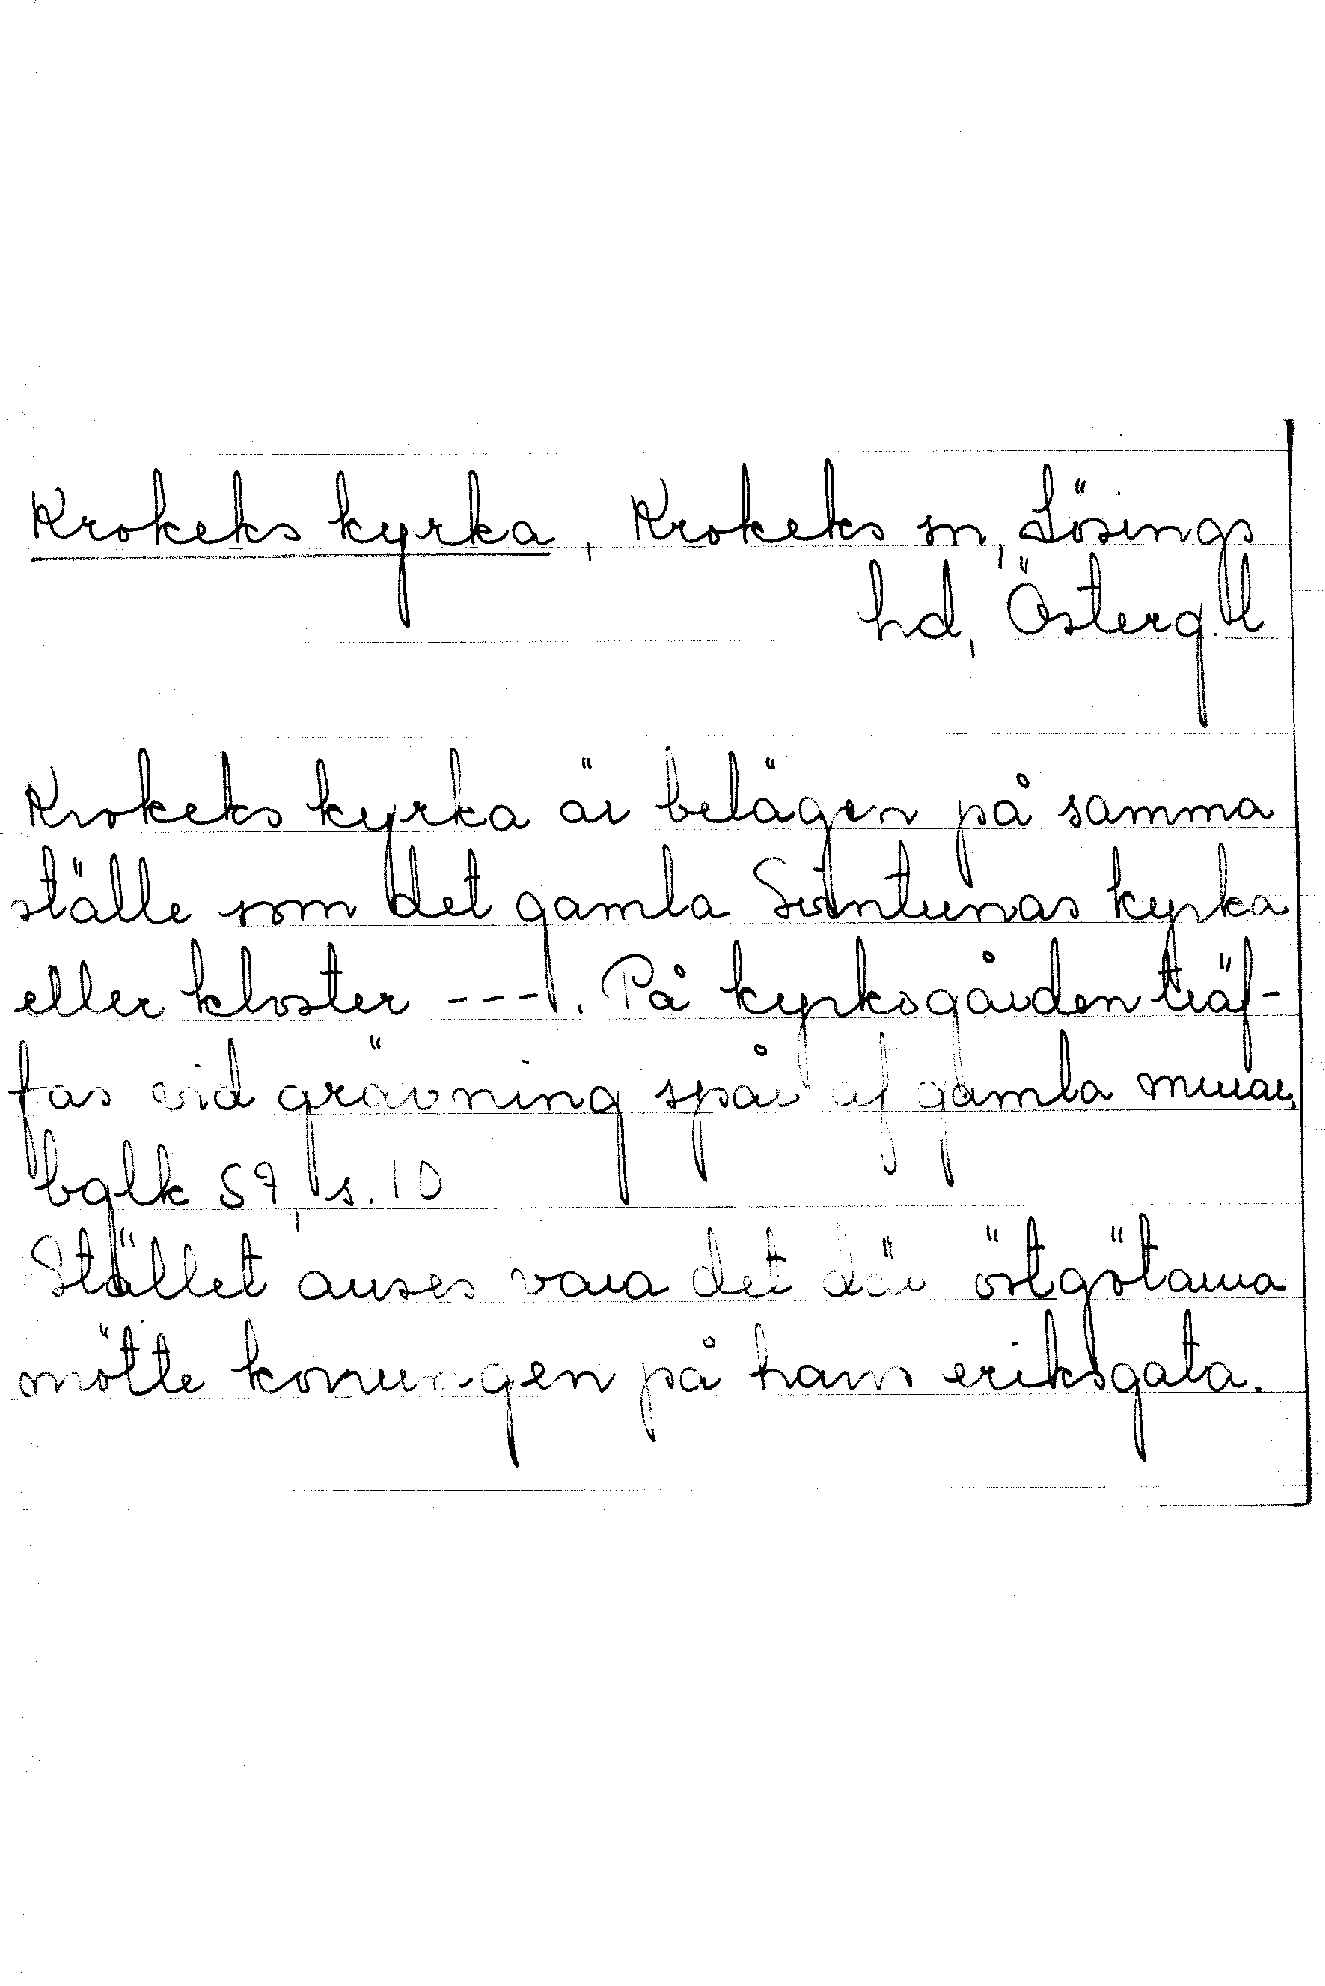 Krokeks kyrka, Krokeks sn, Lösings
hd, Österg. l
Krokeks kyrka är belägen på samma
ställe som det gamla Svintunas kyrka
eller kloster ---. På kyrkogården träf-
fas vid grävning spår af gamla murar,
bglk S9, s. 10
Stället anses vara det där östgötarna
mötte konungen på hans eriksgata.